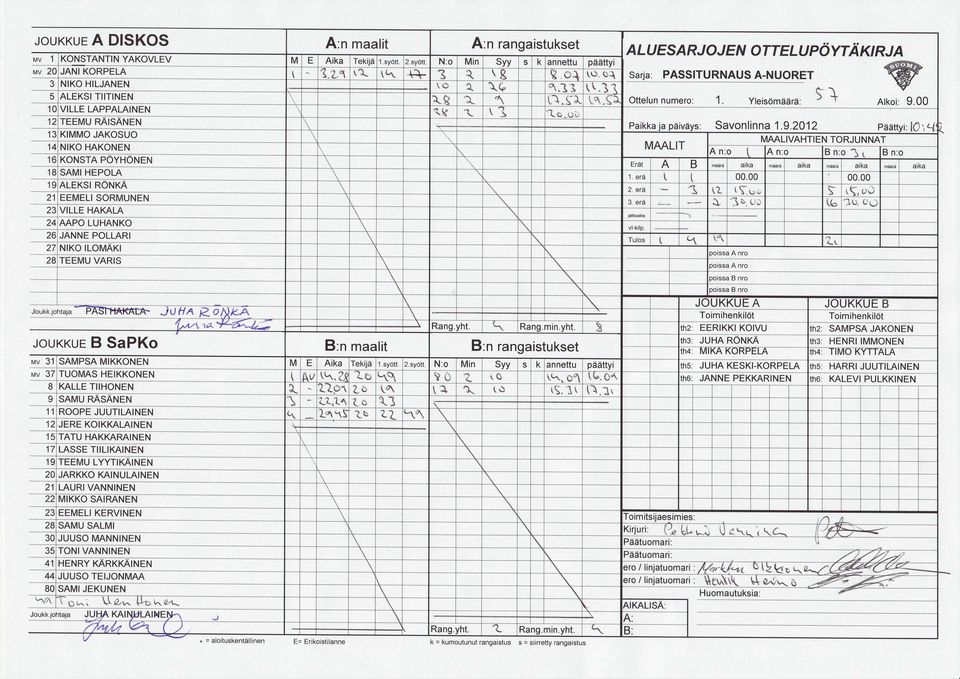 JOUKKUE A DISKOS
MV 1 KONSTANTIN YAKOVLEV
MV 20 JANI KORPELA
3 NIKO HILJANEN
5 ALEKSI TIITINEN
10 VILLE LAPPALAINEN
12 TEEMU RÄISÄNEN
13 KIMMO JAKOSUO
14 NIKO HAKONEN
16 KONSTA PÖYHÖNEN
18 SAMI HEPOLA
19 ALEKSI RÖNKÄ
21 EEMELI SORMUNEN
23 VILLE HAKALA
24 AAPO LUHANKO
26 JANNE POLLARI
27 NIKO ILOMÄKI
28 TEEMU VARIS
Joukk.johtaja PASI HAKALA JUHA RÖNKÄ
A:n maalit
M E Aika Tekijä 1.syött. 2.syött.
1 - 3.29 12 14 17
A:n rangaistukset
N:o Min Syy s k annettu päättyi
3 2 18 8.07 10.07
10 2 26 9.33 11.33
28 2 9 17.52 19.52
28 2 13 20.00
Rang.yht. 4 Rang.min.yht. 8
JOUKKUE B SaPKo
MV 31 SAMPSA MIKKONEN
MV 37 TUOMAS HEIKKONEN
8 KALLE TIIHONEN
9 SAMU RÄSÄNEN
11 ROOPE JUUTILAINEN
12 JERE KOIKKALAINEN
15 TATU HAKKARAINEN
17 LASSE TIILIKAINEN
19 TEEMU LYYTIKÄINEN
20 JARKKO KAINULAINEN
21 LAURI VANNINEN
22 MIKKO SAIRANEN
23 EEMELI KERVINEN
28 SAMU SALMI
30 JUUSO MANNINEN
35 TONI VANNINEN
41 HENRY KÄRKKÄINEN
44 JUUSO TEIJONMAA
80 SAMI JEKUNEN
49 Toni Henttonen
Joukk.johtaja JUHA KAINULAINEN
B:n maalit
M E Aika Tekijä 1.syött. 2.syött.
1 AV 14.28 20 49
2 - 22.09 20 19
3 - 22.29 20 23
4 - 29.45 20 22 49
B:n rangaistukset
N:o Min Syy s k annettu päättyi
80 2 10 14.09 16.09
17 2 10 15.31 17.31
Rang.yht. 2 Rang.min.yht. 4
* = aloituskentällinen E= Erikoistilanne k = kumoutunut rangaistus s = siirretty rangaistus
ALUESARJOJEN OTTELUPÖYTÄKIRJA
SUOMI
Sarja: PASSITURNAUS A-NUORET
Ottelun numero: 1. Yleisömäärä: 57 Alkoi: 9.00
Paikka ja päiväys: Savonlinna 1.9.2012 Päättyi: 10:42
MAALIT MAALIVAHTIEN TORJUNNAT
A n:o 1 A n:o B n:o 31 B n:o
Erät A B määrä aika määrä aika määrä aika määrä aika
1. erä 1 1 00.00 00.00
2. erä - 3 12 15,00 5 15,00
3. erä - - 2 30,00 16 30,00
jatkoaika
vl-kilp.
Tulos 1 4 14 21
poissa A nro
poissa A nro
poissa B nro
poissa B nro
JOUKKUE A JOUKKUE B
Toimihenkilöt Toimihenkilöt
th2: EERIKKI KOIVU th2: SAMPSA JAKONEN
th3: JUHA RÖNKÄ th3: HENRI IMMONEN
th4: MIKA KORPELA th4: TIMO KYTTALA
th5: JUHA KESKI-KORPELA th5: HARRI JUUTILAINEN
th6: JANNE PEKKARINEN th6: KALEVI PULKKINEN
Toimitsijaesimies:
Kirjuri:
Päätuomari:
Päätuomari:
ero / linjatuomari: Markku
ero / linjatuomari: Henrik
Huomautuksia:
AIKALISÄ:
A:
B: